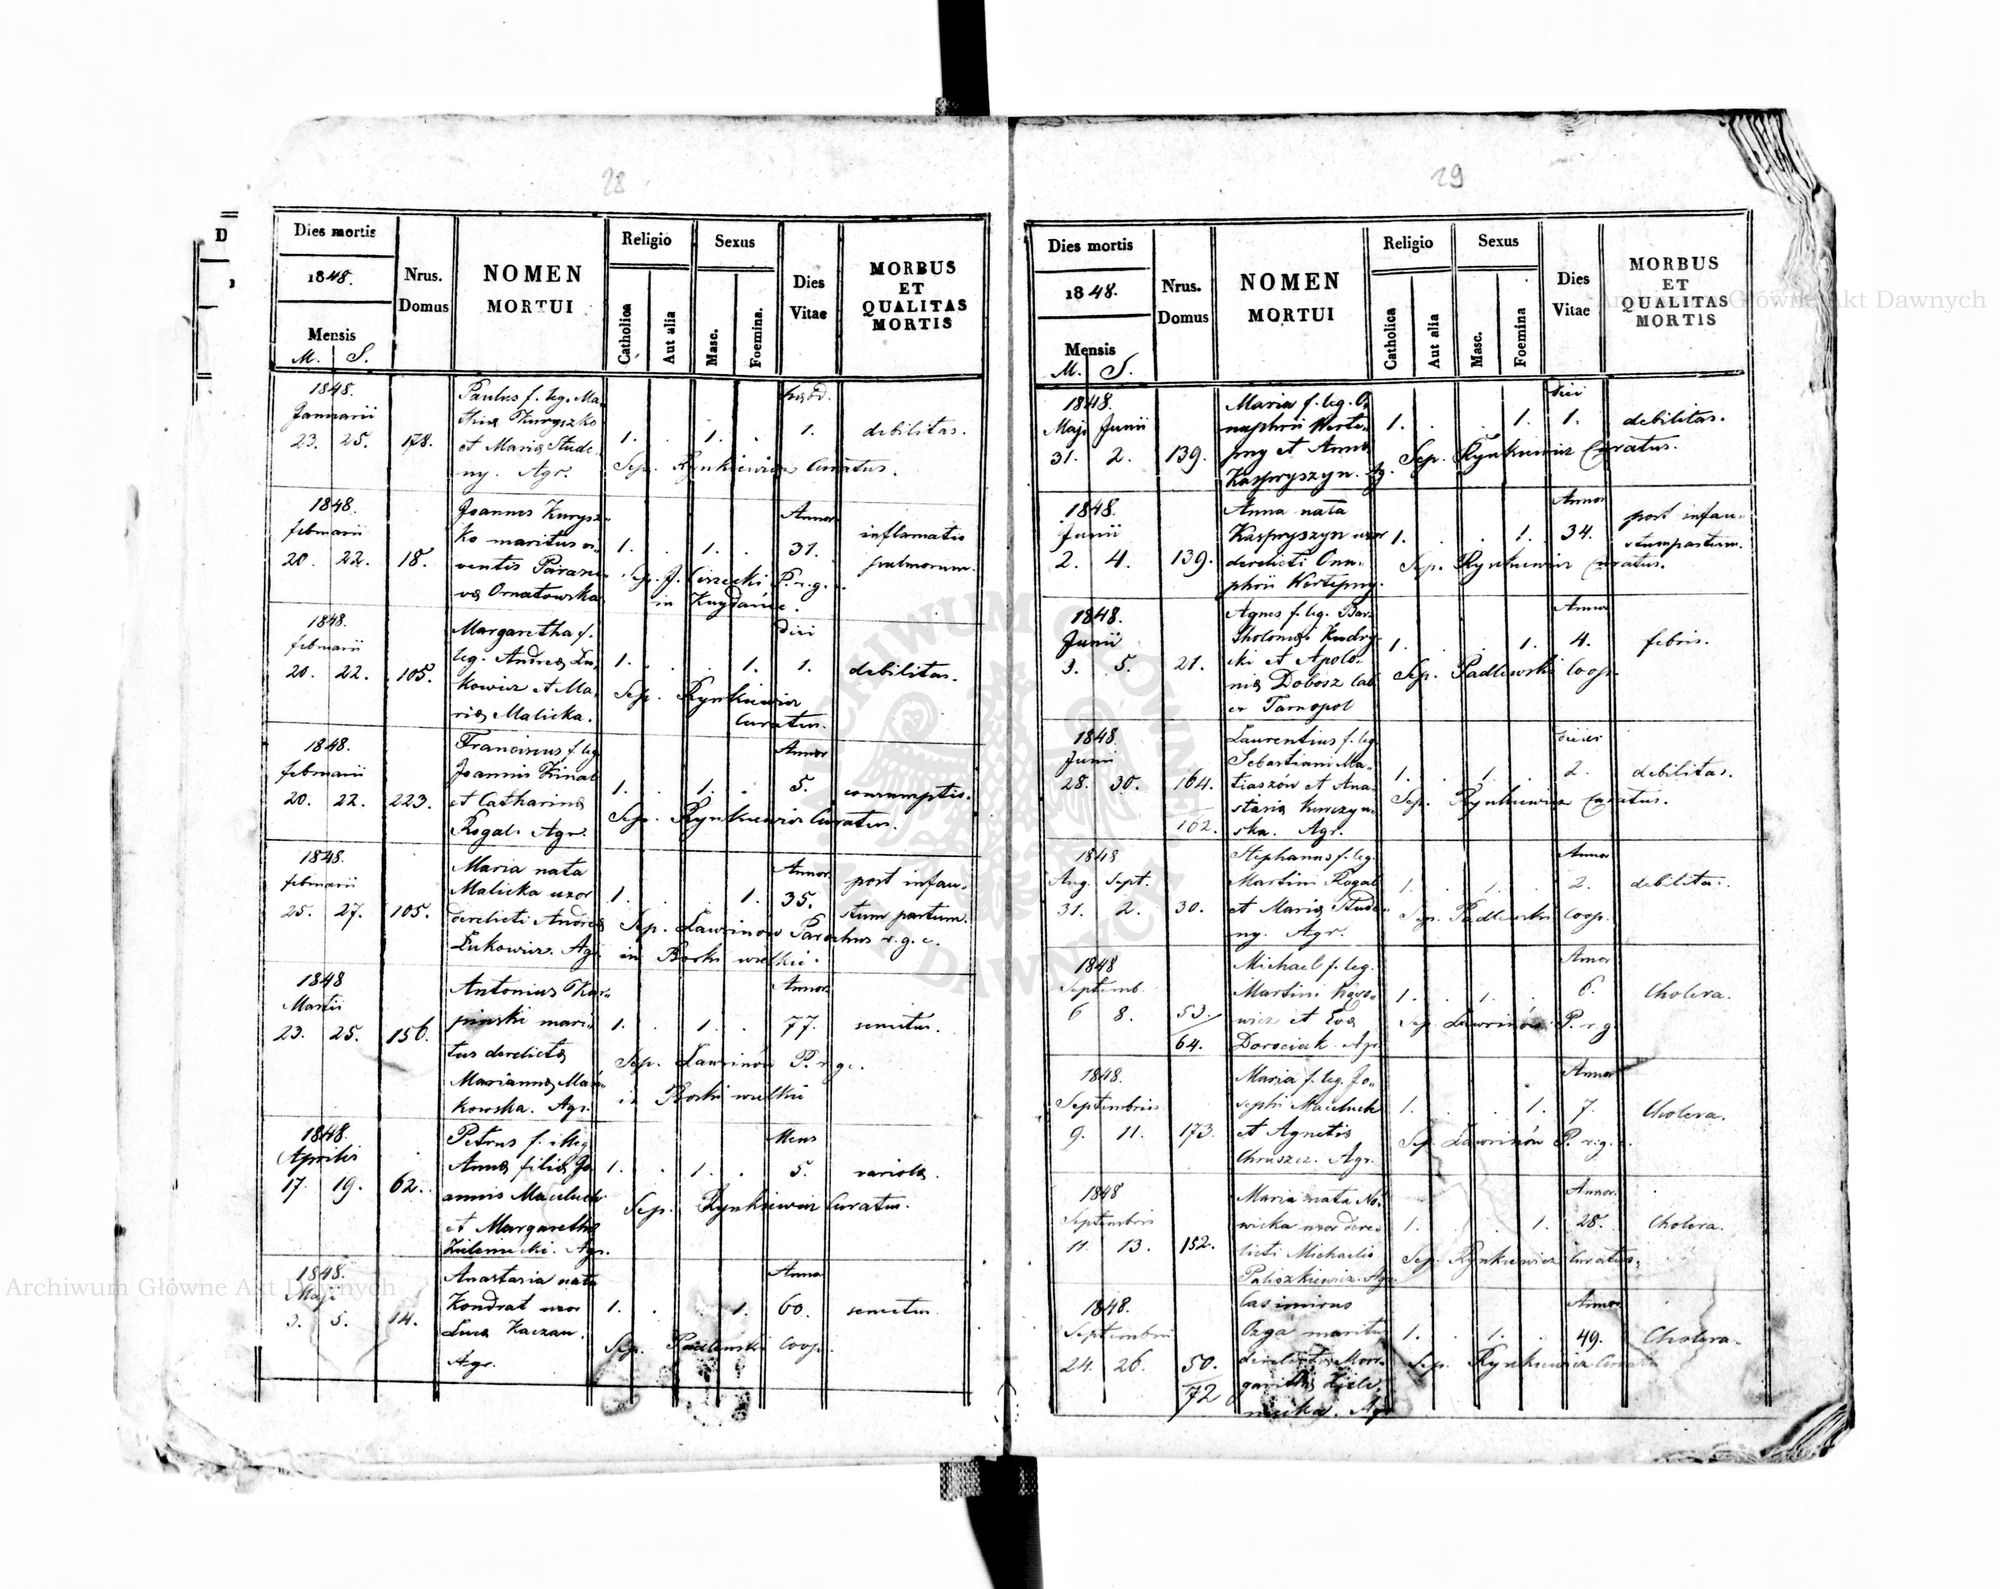 28
Dies mortis
1848.
Mensis
M. S.
Nrus.
Domus
NOMEN
MORTUI
Religio
Catholica
Aut alia
Sexus
Masc.
Foemina.
Dies
Vitae
MORBUS
ET
QUALITAS
MORTIS
1848.
Januarii
23. 25. 178.
Paulus f. leg. Ma-
et Maria Stude-
ny. Agr.
1. 1. 1. debilitas.
Sep. Rynkiewicz Curatus.
1848.
februarii
20. 22. 18.
Joannes Kurysz-
ko maritus vi-
ventis Paras-
Ornatowska
1. 1. Annor. 31.
inflamatio
pulmonum.
Sep. J. P. r. g.
in
1848.
februarii
20. 22. 105.
Margaretha f.
leg. Andreæ Lu-
kowicz et Ma-
riæ Malicka.
1. 1. Diei 1. debilitas.
Sep. Rynkiewicz
Curatus.
1848.
februarii
20. 22. 223.
Franciscus f. leg.
Joannis
et Catharinæ
Rogal. Agr.
1. 1. Annor 5. consumptio.
Sep. Rynkiewicz Curatus.
1848.
februarii
25. 27. 105.
Maria nata
Malicka uxor
derelicti Andreæ
Lukowicz. Agr.
1. 1. Annor. 35.
post infau-
stum partum.
Sep. Lawrinów Parochus r. g. c.
in Borki wielkie.
1848
Martii
23. 25. 156.
Antonius Kar-
pinski mari-
tus derelictæ
Mariannæ
kowska. Agr.
1. 1. Annor. 77. senectus.
Sep. Lawrinów P. r. g. c.
in Borki wielkie
1848.
Aprilis
17. 19. 62.
Petrus f. illeg.
Annæ filiæ Jo-
annis Maceluch
et Margarethæ
Zieleniecki. Agr.
1. 1. Mens 5. variola.
Sep. Rynkiewicz Curatus.
1848.
Maji
3. 5. 14.
Anastasia nata
Kondrat uxor
Lucæ Kaczan.
Agr.
1. 1. Annor 60. senectus
Sep. Padlewski Coop.
29
Dies mortis
1848.
Mensis
M. S.
Nrus.
Domus
NOMEN
MORTUI
Religio
Catholica
Aut alia
Sexus
Masc.
Foemina
Dies
Vitae
MORBUS
ET
QUALITAS
MORTIS
1848.
Maji Junii
31. 2. 139.
Maria f. leg. O-
nuphrii Werte-
pny et Anna
Kaspryszyn. Ag.
1. 1. Diei 1. debilitas.
Sep. Rynkiewicz Curatus.
1848.
Junii
2. 4. 139.
Anna nata
Kaspryszyn uxor
derelicti Onu-
phrii Wertepny.
1. 1. Annor 34.
post infau-
stum partum.
Sep. Rynkiewicz Curatus.
1848.
Junii
3. 5. 21.
Agnes f. leg. Bar-
tholomæi Kudry-
cki et Apolo-
niæ Dobosz Cal
ex Tarnopol
1. 1. Annor 4. febris.
Sep. Padlewski Coop.
1848.
Junii
28. 30. 164.
162.
Laurentius f. leg.
Sebastiani Ma-
tiaszów et Ana-
stasiæ
ska. Agr.
1. 1. 2. debilitas.
Sep. Rynkiewicz Curatus.
1848
Aug. Sept.
31. 2. 30.
Stephanus f. leg.
Martini Rogal
et Mariæ Stude-
ny. Agr.
1. 1. Annor 2. debilitas.
Sep. Padlewski Coop.
1848
Septemb.
6 8. 53.
64.
Michael f. leg.
Martini
wicz et Evæ
Dorociak. Agr
1. 1. Annor 6. Cholera.
Sep. Lawrinów P. r. g.
1848.
Septembris
9. 11. 173.
Maria f. leg. Jo-
sephi Maceluch
et Agnetis
Chruszcz. Agr.
1. 1. Annor 7. Cholera.
Sep. Lawrinów P. r. g. c.
1848
Septembris
11. 13. 152.
Maria nata No-
wicka uxor dere-
licti Michaelis
Paliszkiewicz. Agr.
1. 1. Annor. 28. Cholera.
Sep. Rynkiewicz Curatus.
1848.
Septembris
24. 26. 50.
72
Casimirus
Ozga maritus
derelictæ Mar-
garithæ Ziele-
niecka. Agr
1. 1. Annor. 49. Cholera.
Sep. Rynkiewicz
Archiwum Główne Akt Dawnych
Archiwum Główne Akt Dawnych
ARCHIWUM GŁÓWNE AKT DAWNYCH